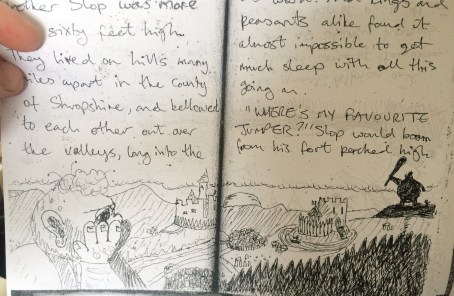 other Slop was more
sixty feet high.
They lived on hills many
miles apart in the County
of Shropshire, and bellowed
to each other out over
the valleys, long into the
kings and
peasants alike found it
almost impossible to get
much sleep with all this
going on.
"WHERE'S MY FAVOURITE
JUMPER?!" Slop would boom
from his fort perched high